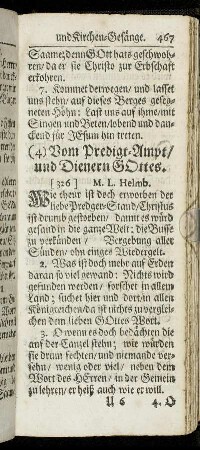 und Kirchen-Gesänge. 467
Saame; denn GOtt hats geschwoh-
ren/ da er sie Christo zur Erbschaft
erkohren.
7. Kommet derwegen/ und lasset
uns stehn/ auf dieses Berges geseg-
neten Höhn: Last uns auf ihme/ mit
Singen und Beten/ lobend und dan-
ckend für JEsum hin treten.
(4) Vom Predigt-Ampt/
und Dienern GOttes.
[326] M. L. Helmb.
Wie theur ist doch erworben der
liebe Prediger-Stand/ Christus
ist drumb gestorben/ damit es würd
gesand in die gantze Welt: die Busse
zu verkünden/ Vergebung aller
Sünden/ ohn einges Wiedergelt.
2. Was ist doch mehr auf Erden
daran so viel gewand: Nichts wird
gefunden werden/ forschet in allem
Land; suchet hier und dort/ in allen
Königreichen/ da ist nichts zu vergle
chen dem lieben GOttes Wort.
3. O wenn es doch bedächten die
auf der Cantzel stehn; wie würden
sie drum fechten/ und niemands ver-
sehn/ wenig oder viel/ neben dem
Wort des HErren/ in der Gemein
zu lehren/ er heiß auch wie er will.
U 6 4. O